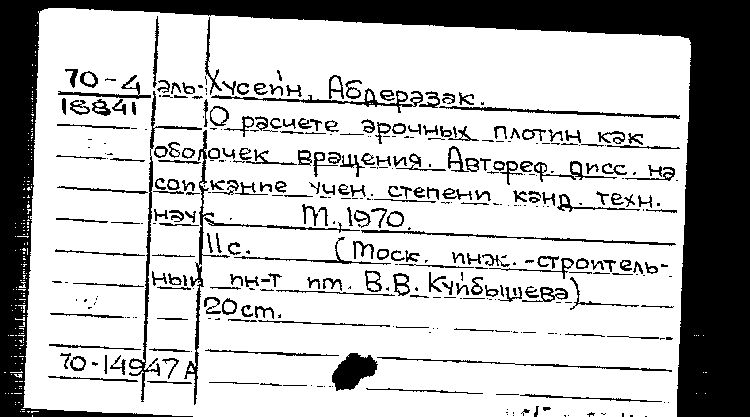 70-4 эль-Хусейн, Абдеразак.
18841
О расчете арочных плотин как
оболочек вращения. Автореф. дисс. на
соискание учен. степени канд. техн.
наук. М., 1970.
11с. (Моск. инж.-строитель-
ный ин-т им. В.В. Куйбышева)
20cm.
70-14947А